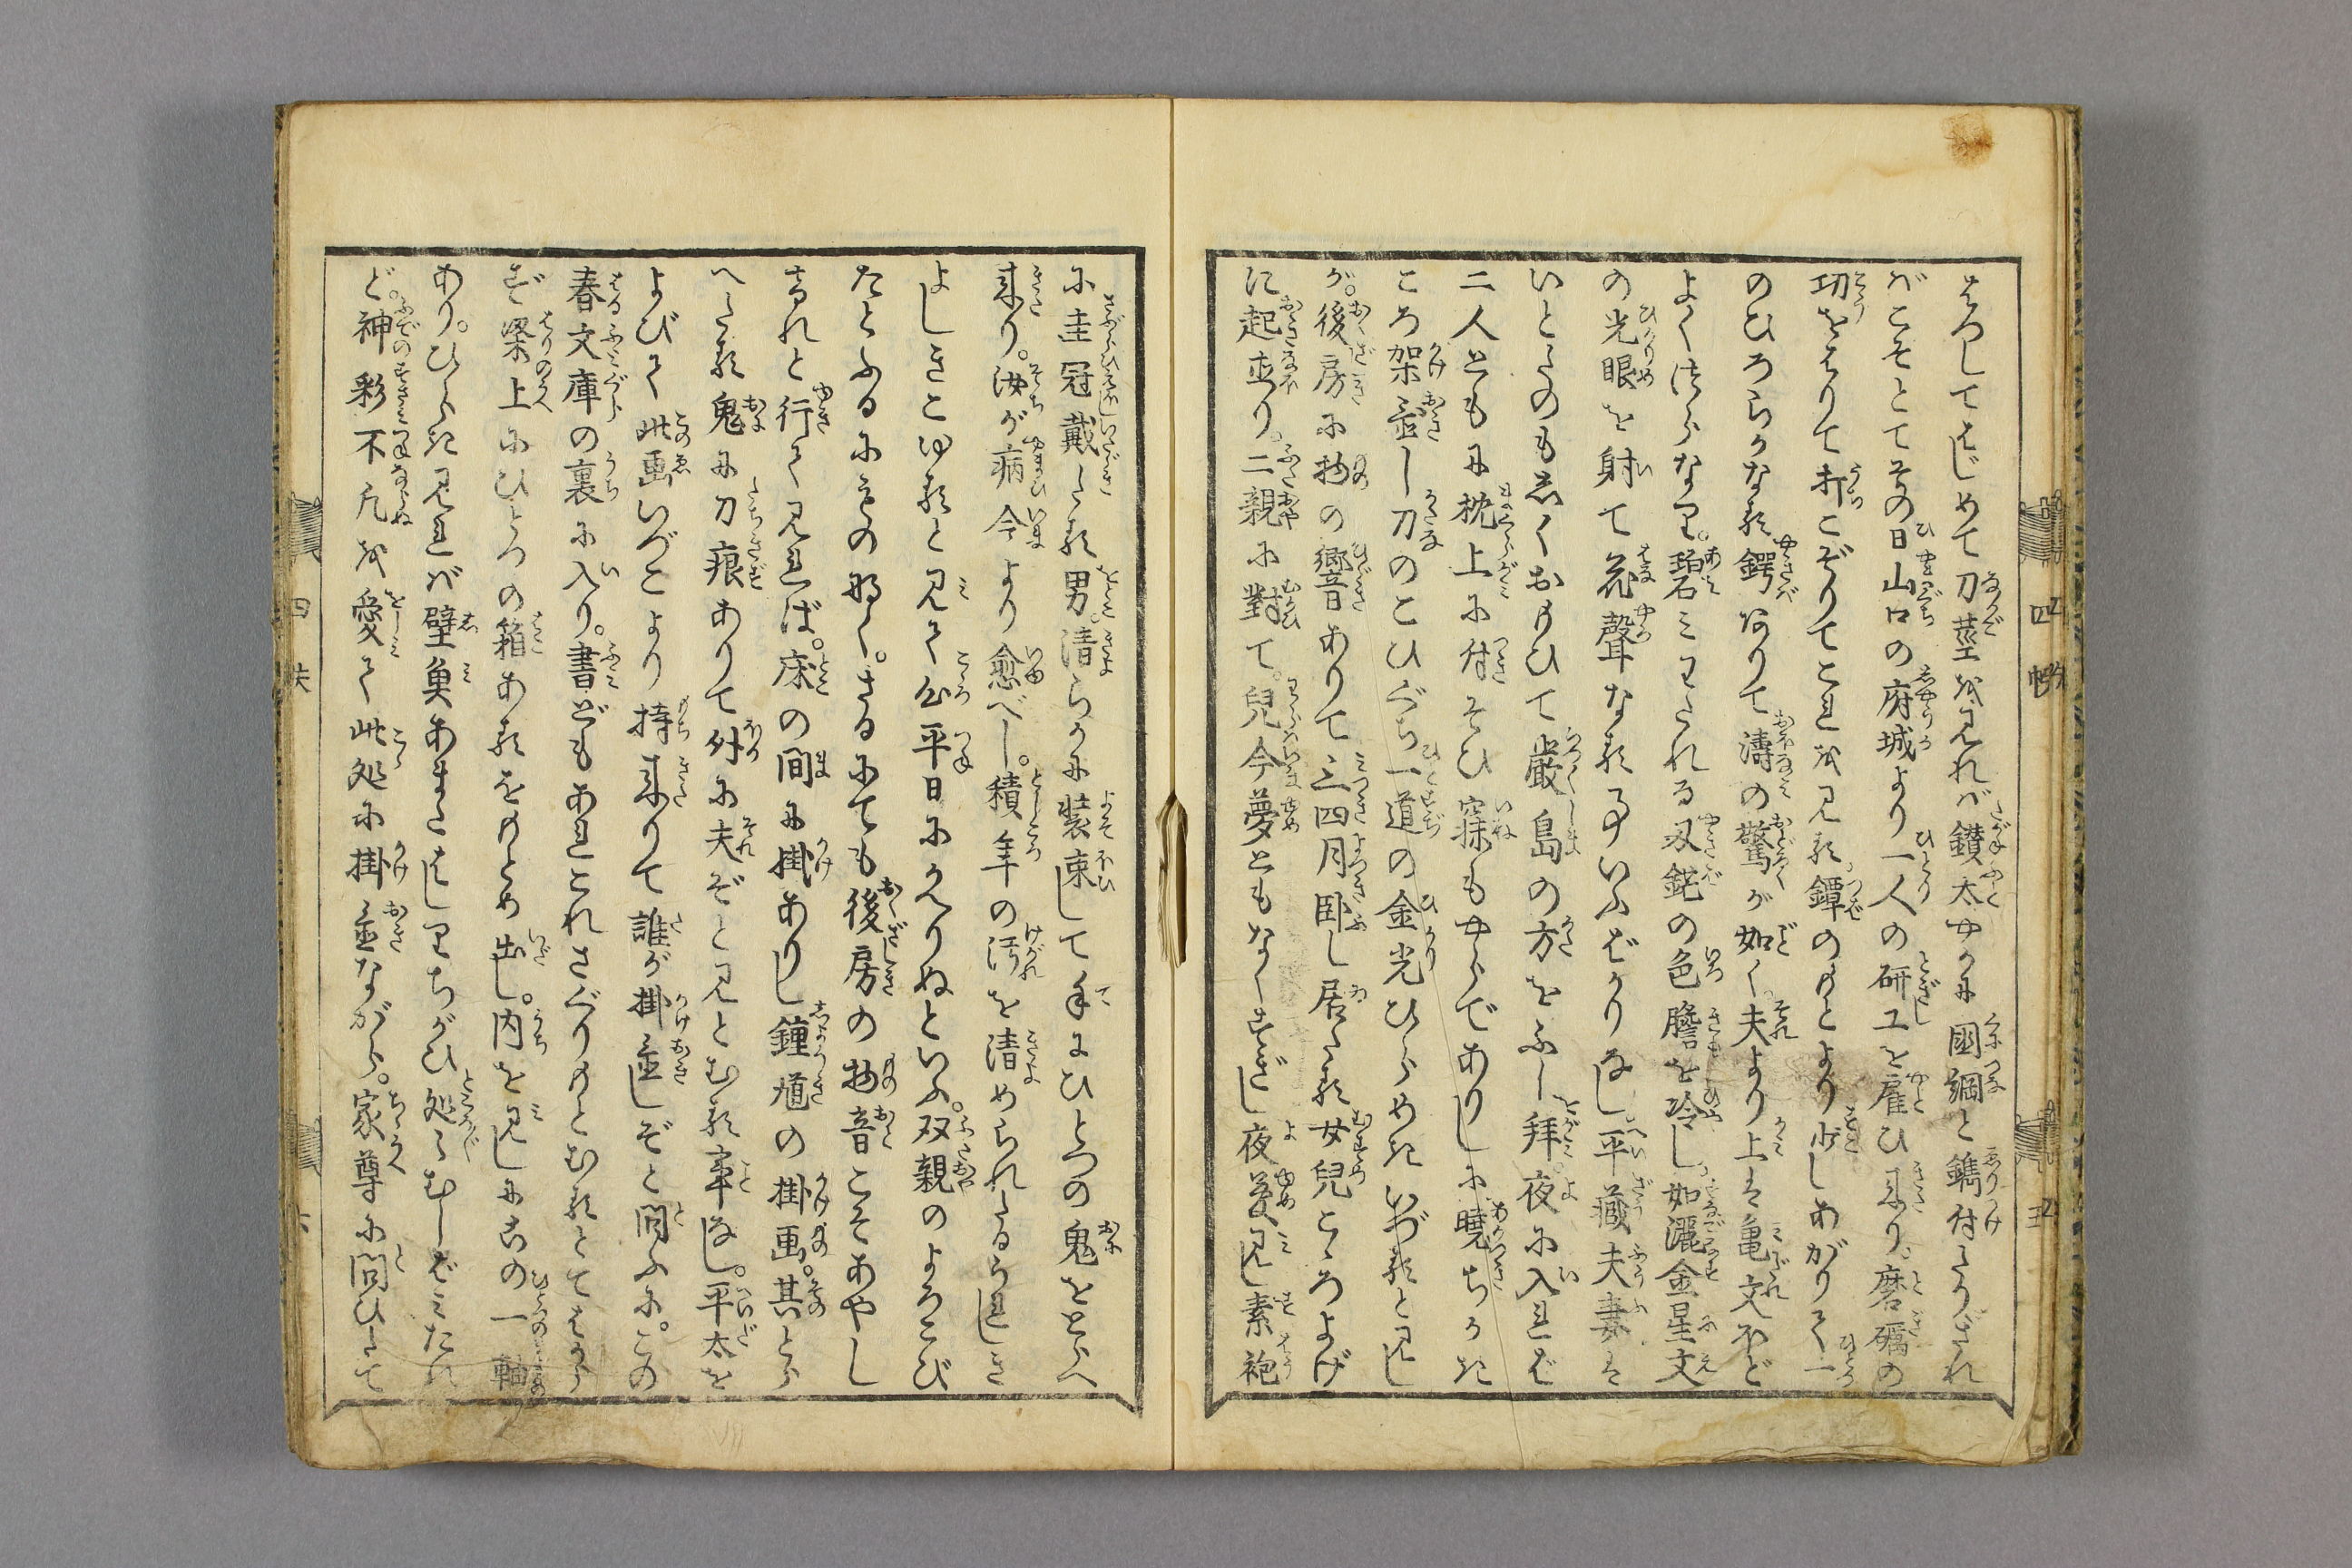 はづしてはじめて刀莖を見れば鑚太やかに國綱と鐫付たりされ
ばこそとてその日山口の府城より一人の研工を雇ひ来り。磨礪の
功をはりて折こぞりてこれを見る。鐔のもとより少しあがりて一
のひろらかなる鍔ありて濤の驚が如く。夫より上は亀文ほど
よくはらなり。碧みわたれる刄鋩の色膽を冷し。如灑金星文
の光眼を射て花聲なる事いふばかりなし平藏夫妻は
いとたのもしくおもひて巌島の方をふし拜。夜に入れば
二人ともに枕上に付そひ寐もやらでありしに曉ちかき
ころ架置し刀のこひぐち一道の金光ひらめきいづると見し
が。後房に物の響音ありて三四月卧し居たる女兒こゝろよげ
に起出り。二親に對て。兒今夢ともなくすぎし夜夢見し素袍
に圭冠戴たる男。清らかに装束して手にひとつの鬼をとらへ
来り。汝が病今より愈べし。積年の汚を清められたるうれしき
よしきこゆると見て公平日にかへりぬといふ。双親のよろこび
たとふるにもの那し。さるにても後房の物音こそあやし
けれと行て見れば。床の間に掛ありし鍾馗の掛画。其とら
へたる鬼に刀痕ありて外に夫ぞと見とむる事なし。平太を
よびて此画いづこより持来りて誰が掛置しぞと問ふに。この
春文庫の裏に入り。書どもあれこれさぐりもとむるとてはから
ず梁上にひとつの箱あるをもとめ出し。内を見しに古の一軸
あり。ひらき見れば壁魚あまたはしりちがひ処々むしばみたれ
ど。神彩不凡を愛て此処に掛置ながら。家尊に問ひたて
四 五
四 六